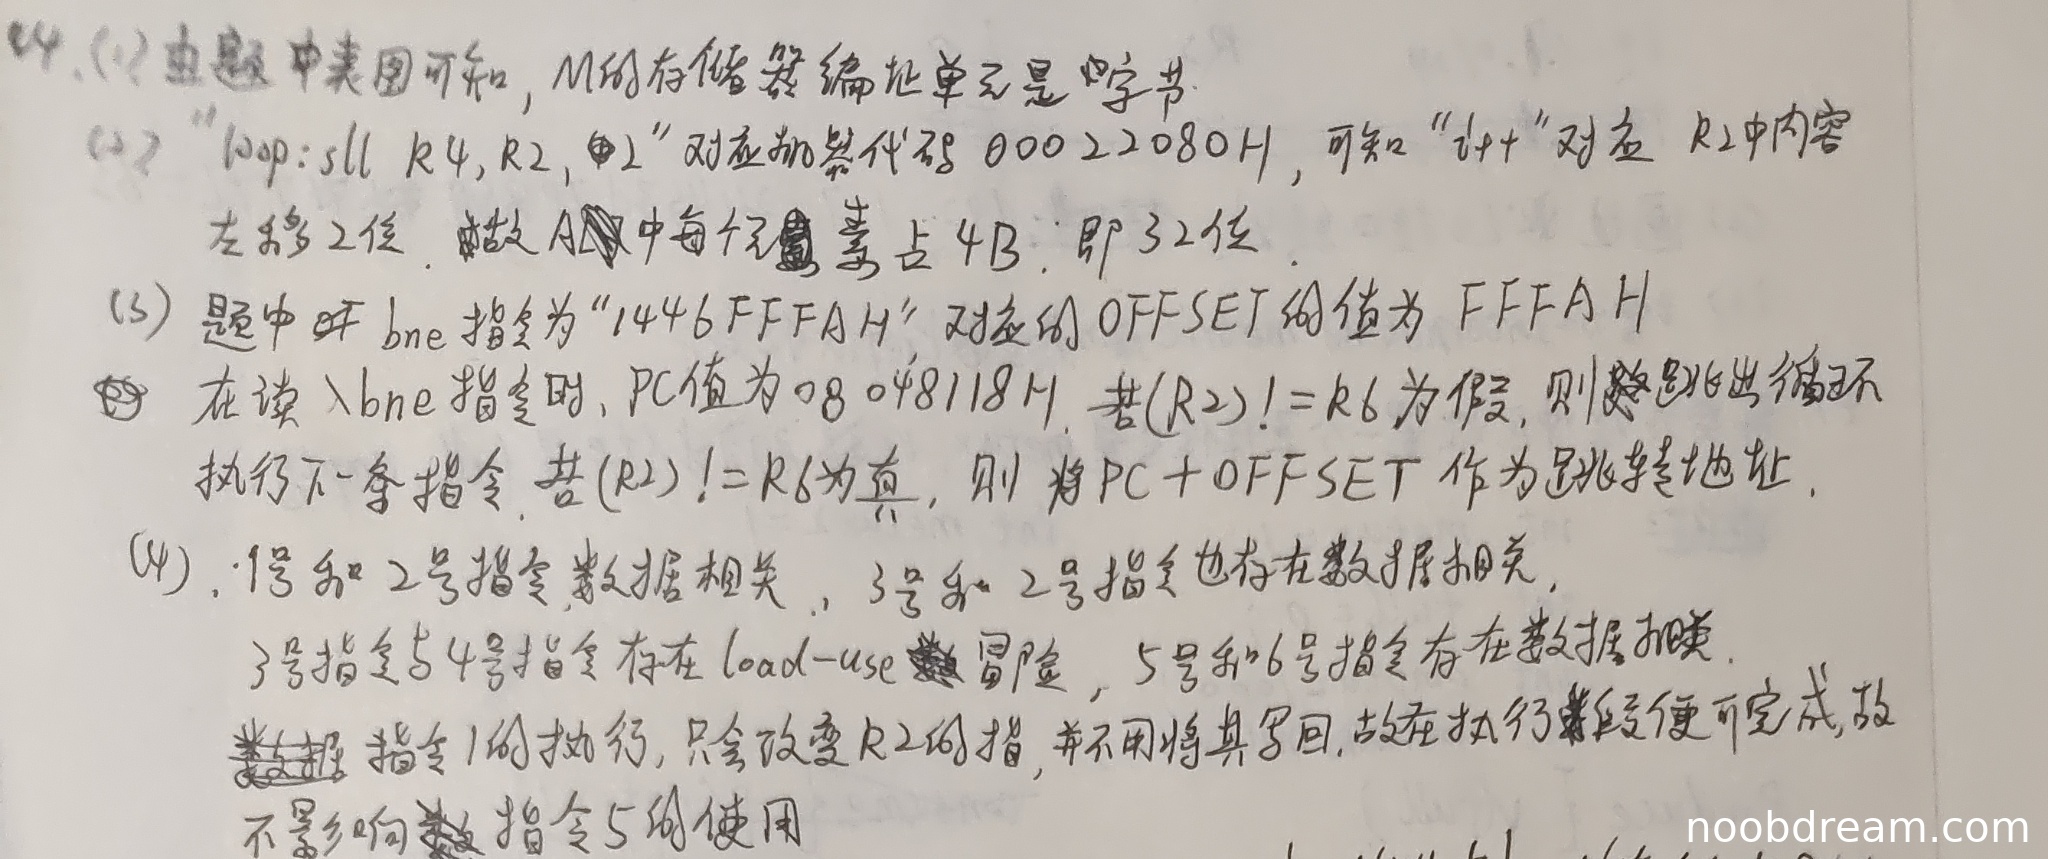 44.(1) 由题中表图可知，M的存储器编址单元是字节.
(2) "loop: sll R4, R2, 2"对应机器代码 00022080H，可知"i++"对应 R2中内容
左移2位. 故A中每个元素占4B. 即32位.
(3) 题中 bne指令为"1446FFFAH"对应的OFFSET的值为 FFFAH
在读入bne指令时、PC值为08048118H. 若(R2)!=R6为假，则跳出循环
执行下一条指令. 若(R2)!=R6为真，则将PC+OFFSET作为跳转地址.
(4). 1号和2号指令数据相关., 3号和2号指令也存在数据相关,
3号指令与4号指令存在load-use冒险，5号和6号指令存在数据相关.
指令1的执行，只会改变R2的指，并不用将其写回.故在执行段便可完成,故
不影响指令5的使用
noobdream.com